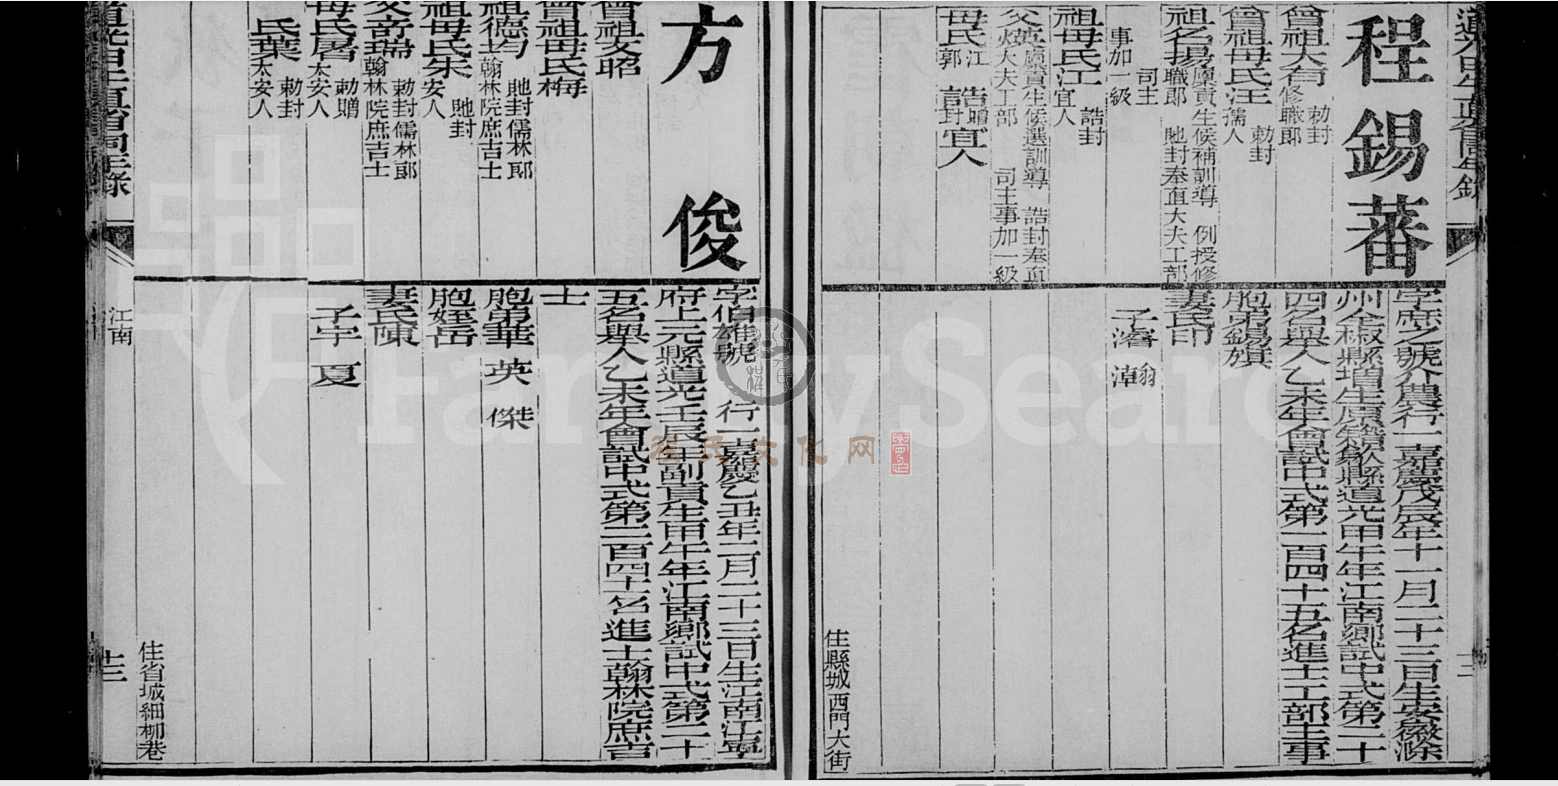 程錫蕃
曾祖大有 勅封修職郎
曾祖母氏汪 勅封孺人
祖名揚 廩貢生候補訓導 例授修職郎 貤封奉直大夫工部
司主事加一級
祖母氏江 誥封宜人
父煥 廩貢生候選訓導 誥封奉直大夫工部 司主事加一級
母氏江郭 誥贈封宜人
字庶之號介農行一嘉慶戊辰年十一月二十三日生安徽滁
州全椒縣增生原籍歙縣道光甲午年江南鄉試中式第二十
四名舉人乙未年會試中式第一百四十五名進士工部主事
胞弟錫旂
妻氏印
子濬 瀚 潭
住縣城西門大街
方俊
曾祖文昭
曾祖母氏梅
祖德均 貤封儒林郎翰林院庶吉士
祖母氏宋 貤封安人
父奇瑞 勅封儒林郎翰林院庶吉士
母氏屠 勅贈太安人
氏葉 勅封太安人
字伯雄號 行一嘉慶乙丑年二月二十三日生江南江寧
府上元縣道光壬辰年副貢生甲午年江南鄉試中式第二十
五名舉人乙未年會試中式第二百四十名進士翰林院庶吉
士
胞弟華 英 傑
胞姪岳
妻氏陳
子宇 夏
住省城細柳巷
道光甲午直省同年錄
江南
FamilySearch
程氏文化网